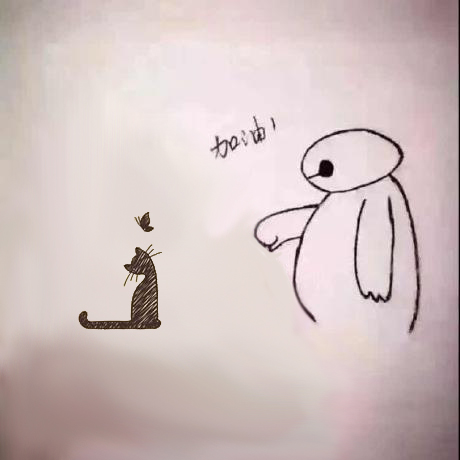 加油!